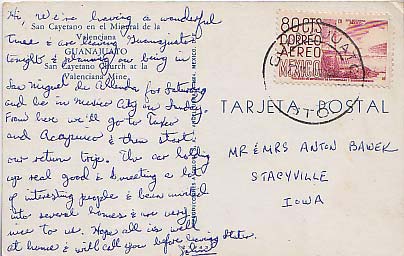 Hi, We're having a wonderful
San Cayetano en el Mineral de la
Valenciana
time & are leaving Guanajuato
GUANAJUATO
tonight & planning on being in
San Cayetano Church at the
Valenciana Mine.
San Miguel de Allende for Saturday
and be in Mexico City on Sunday.
From here we'll go to Taxco
and Acapulco & then start
our return trip. The car holding
up real good & meeting a lot
of interesting people & been invited
into several homes & are very
nice to us. Hope all is well
at home & will call you before leaving States.
80 CTS
CORREO
AEREO
MEXICO
GUANAJUATO
GTO
TARJETA POSTAL
MR & MRS ANTON BAWEK
STACYVILLE
IOWA